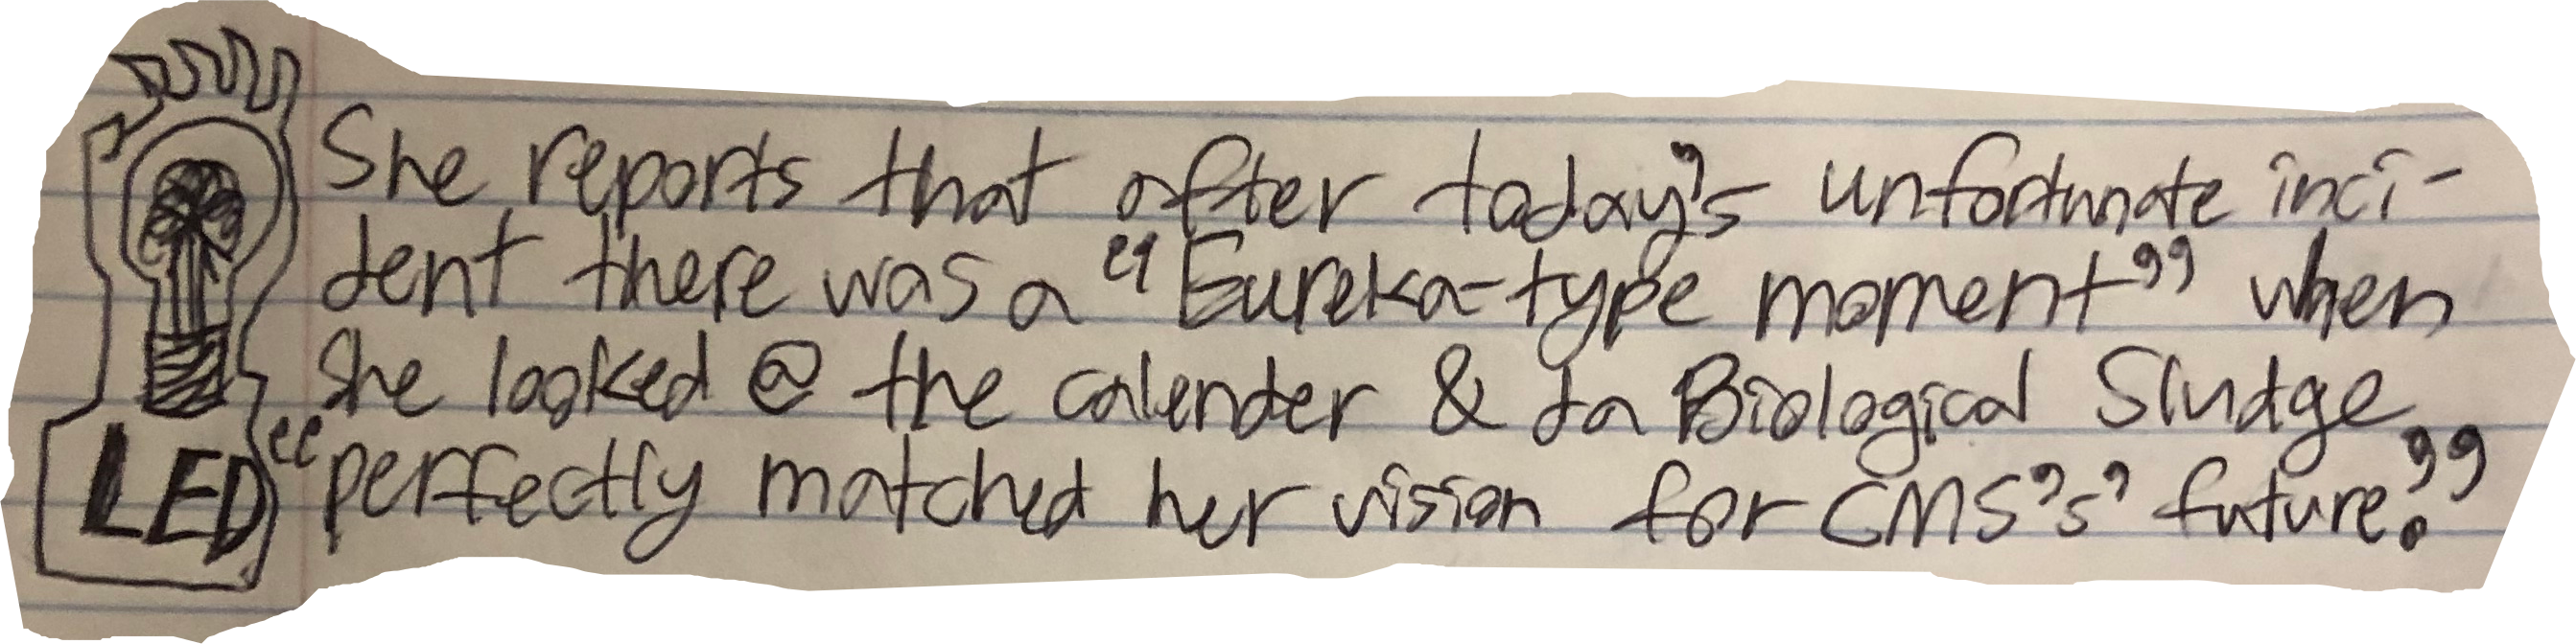 She reports that after today's unfortunate inci-
dent there was a "Eureka-type moment" when
she looked @ the calender & da Biological Sludge
"perfectly matched her vision for CMS's' future."
LED